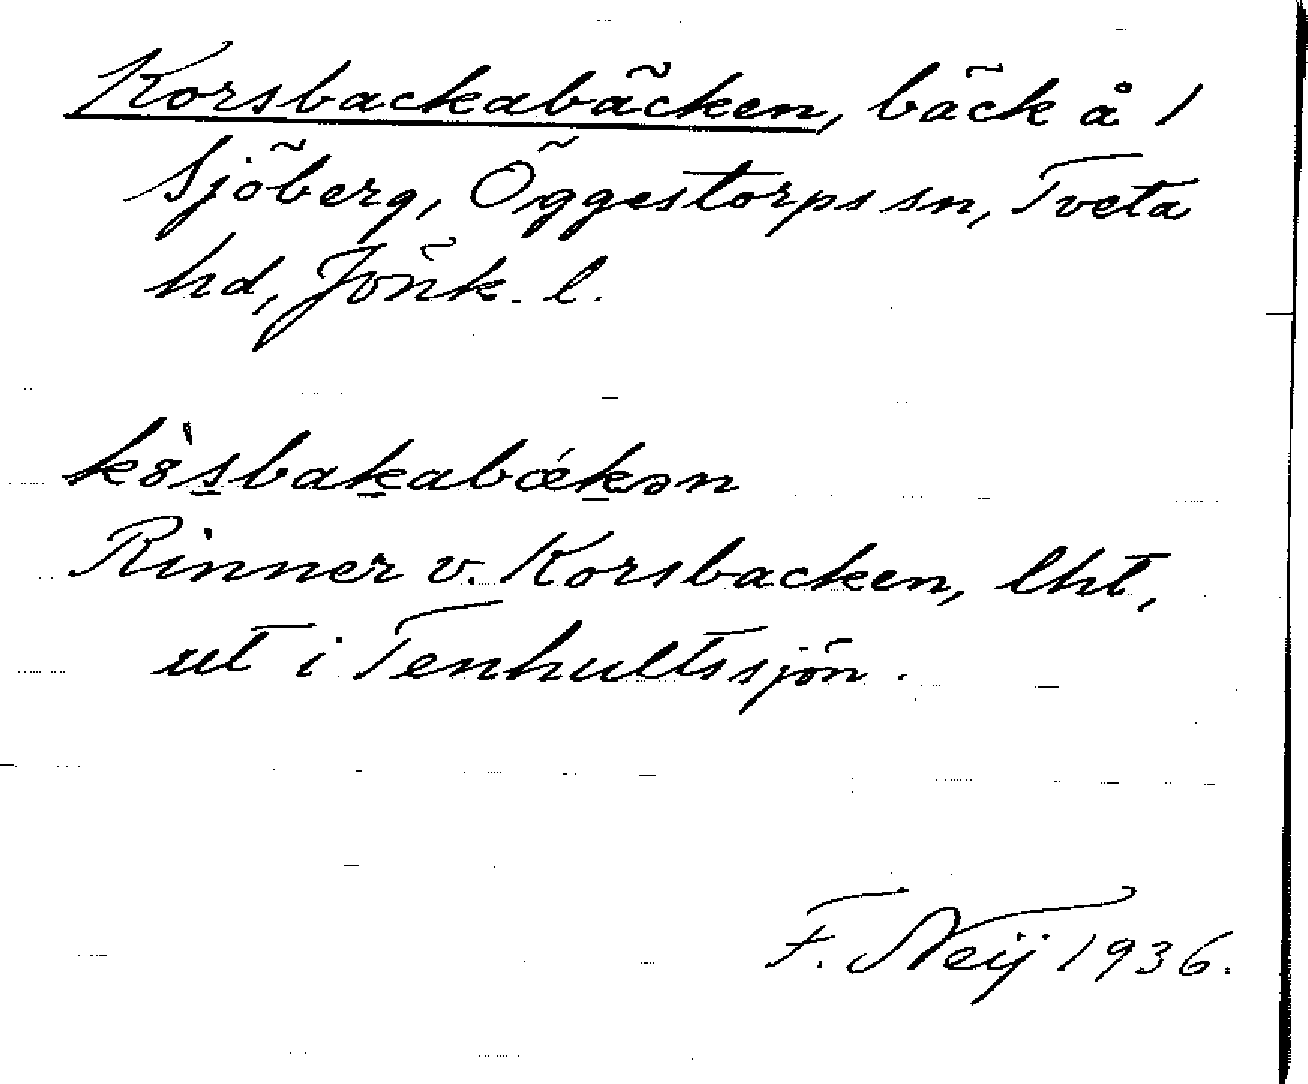 Korsbackabäcken, bäck å 1
Sjöberg, Öggestorps sn, Tveta
hd, Jönk. l.
Rinner v. Korsbacken, lht,
ut i Tenhultssjön.
F. Neij 1936.